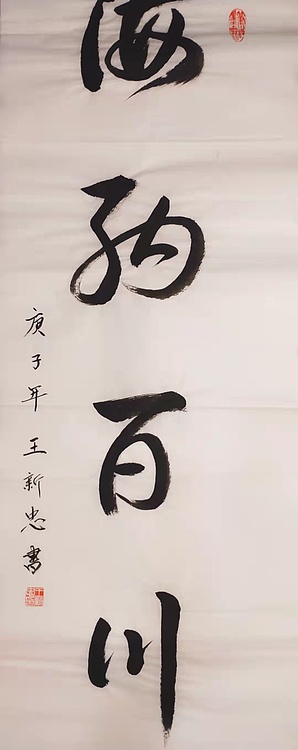 海纳百川
庚子年王新忠书